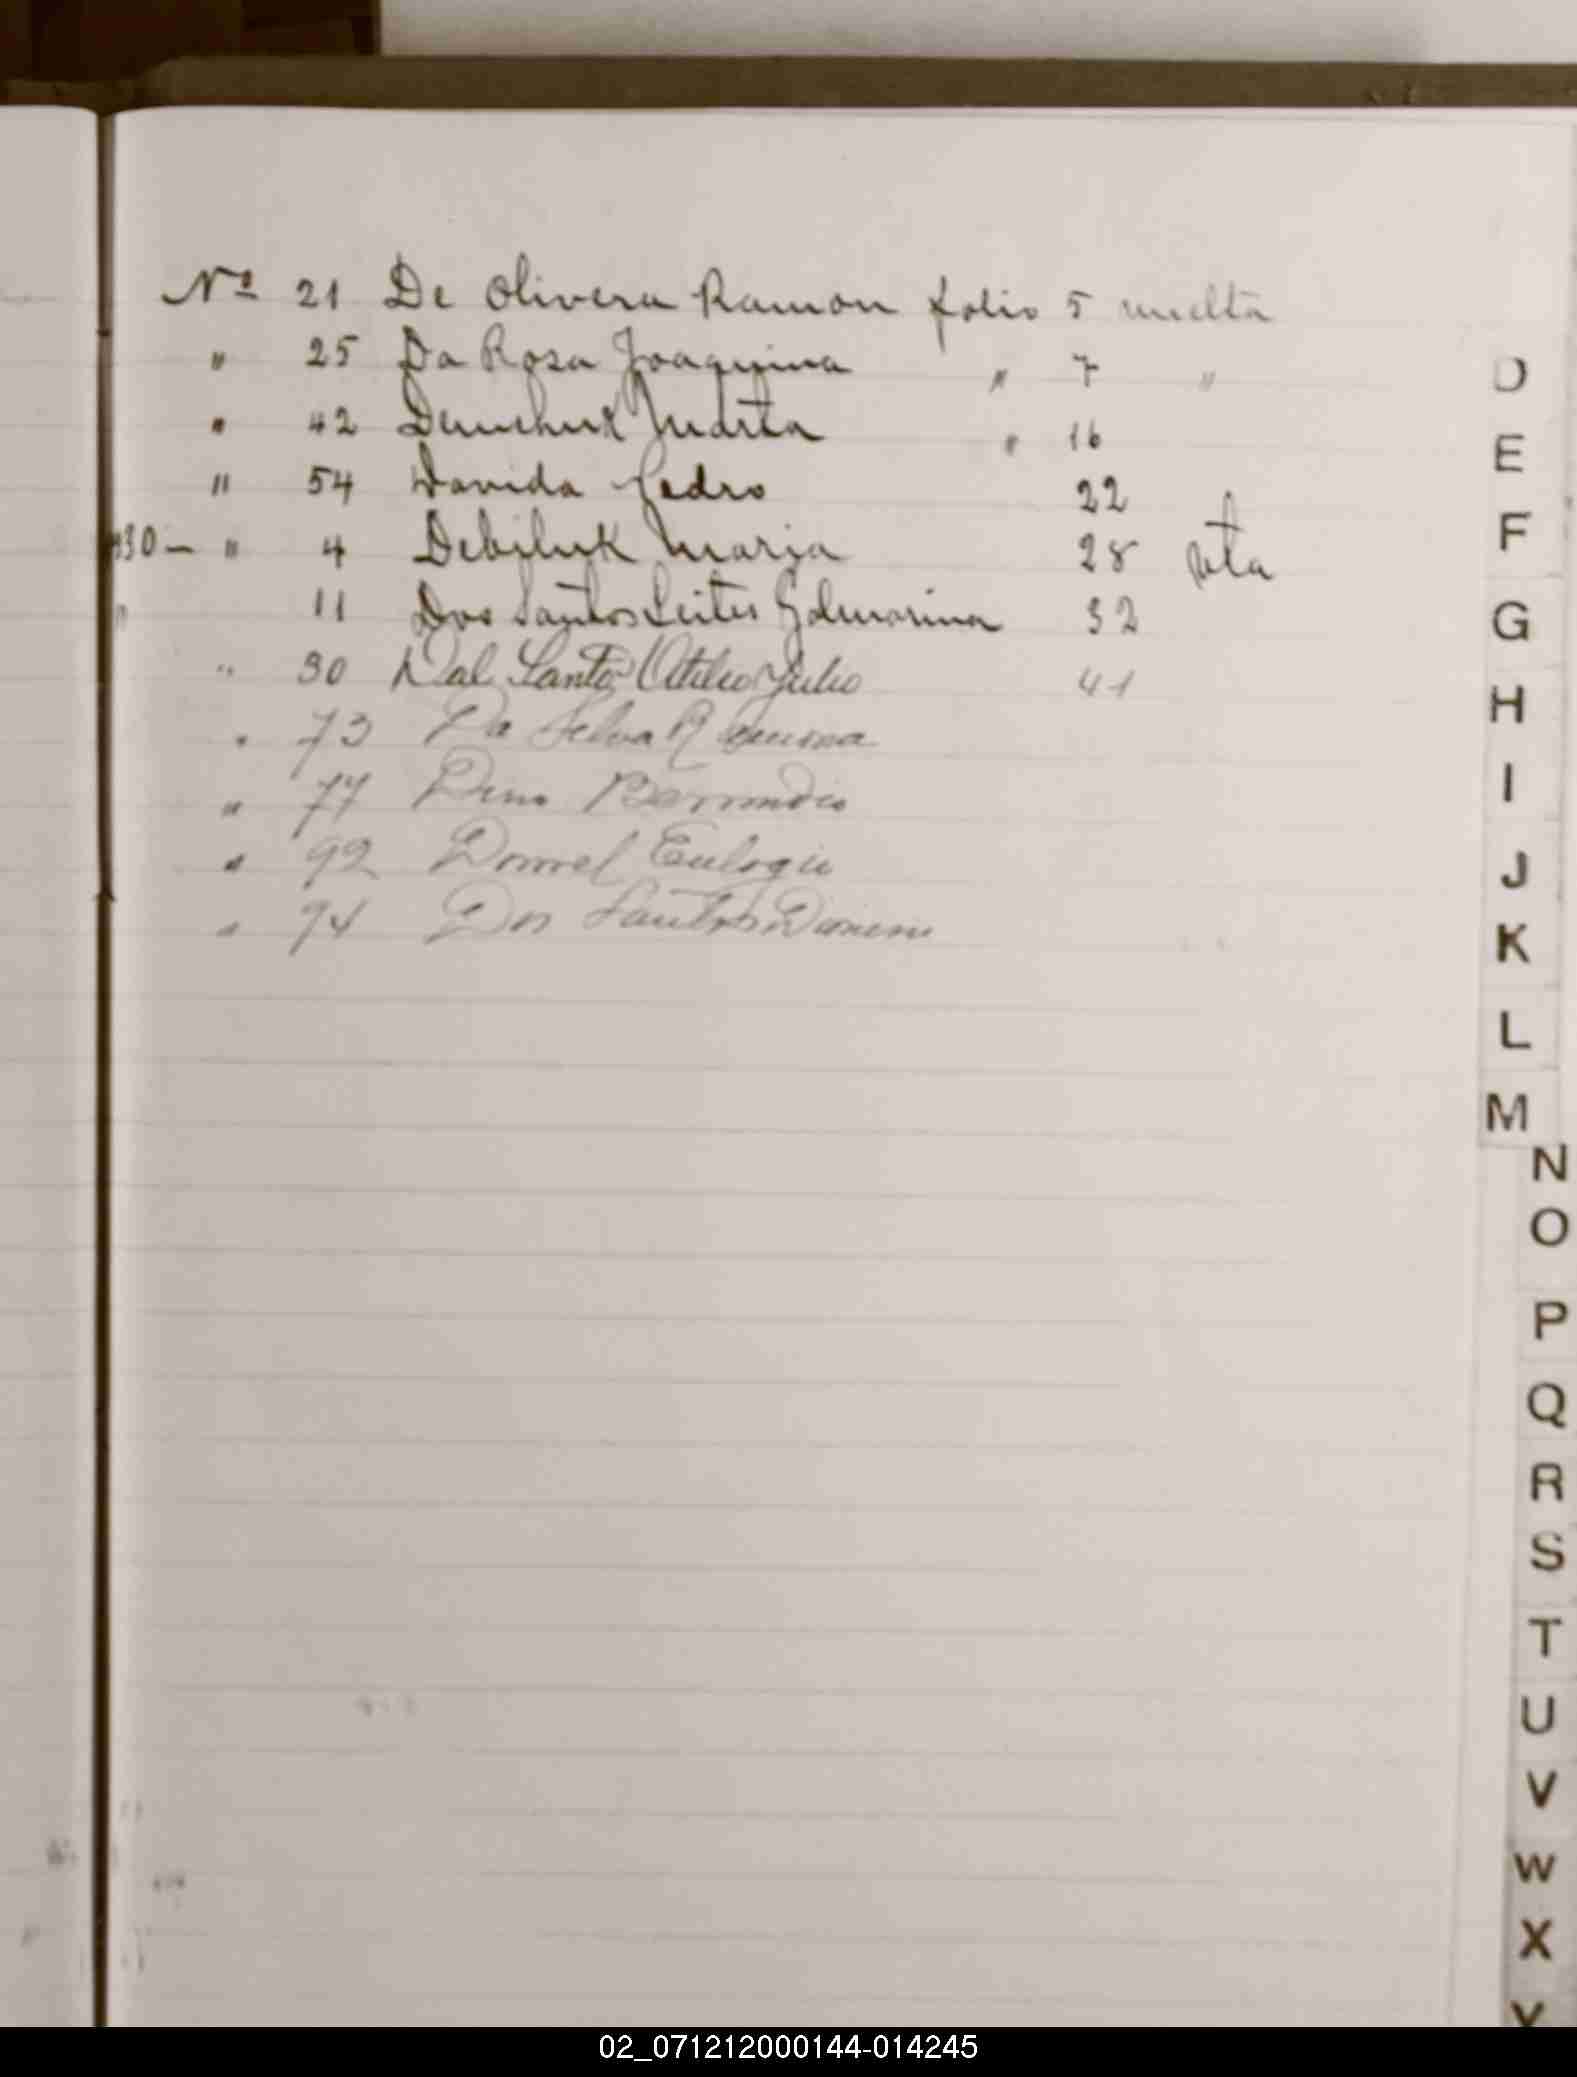 Nº 21 De Olivera Ramon folio 5 vuelta
" 25 Da Rosa Joaquina " 7 "
" 42 Demchuk Marta " 16
" 54 Davida Pedro 22
930 - " 4 Debiluk Marja 28 vta
" 11 Dos Santos Leites 32
" 30 Dal Santo Atilio Julio 41
" 73 Da Silva Ramona
" 77 Bernardio
" 92 Dornel Eulogio
" 94 Dos Santos
D
E
F
G
H
I
J
K
L
M
N
O
P
Q
R
S
T
U
V
W
X
Y
02_071212000144-014245